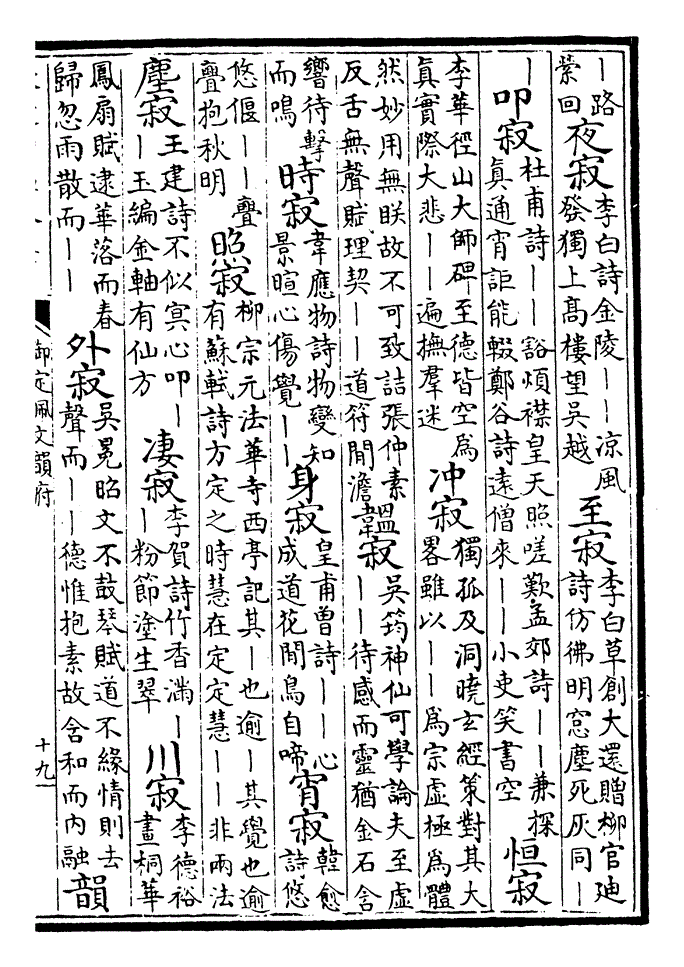 —路縈回夜寂李白詩金陵——凉風發獨上高樓望吳越至寂李白草創大還贈柳官迪詩仿彿明窓塵死灰同—
—叩寂杜甫詩——豁煩襟皇天照嗟歎孟郊詩——兼探真通宵詎能輟鄭谷詩遠僧來——小吏笑書空恒寂
李華徑山大師碑至德皆空為真實際大悲——遍撫羣迷冲寂獨孤及洞曉玄經策對其大畧雖以——為宗虛極為體
然妙用無眹故不可致詰張仲素反舌無聲賦理契——道符閒澹韞寂吳筠神仙可學論夫至虛——待感而靈猶金石含
響待擊而鳴時寂韋應物詩物變知景暄心傷覺——身寂皇甫曾詩——心成道花閒鳥自啼宵寂韓愈詩悠
悠偃——亹亹抱秋明照寂柳宗元法華寺西亭記其—也逾—其覺也逾有蘇軾詩方定之時慧在定定慧——非兩法
塵寂王建詩不似冥心叩——玉編金軸有仙方凄寂李賀詩竹香滿——粉節塗生翠川寂李德裕畫桐華
鳳扇賦逮華落而春歸忽雨散而——外寂吳冕昭文不鼓琴賦道不緣情則去聲而——德惟抱素故含和而內融韻
御定佩文韻府
十九